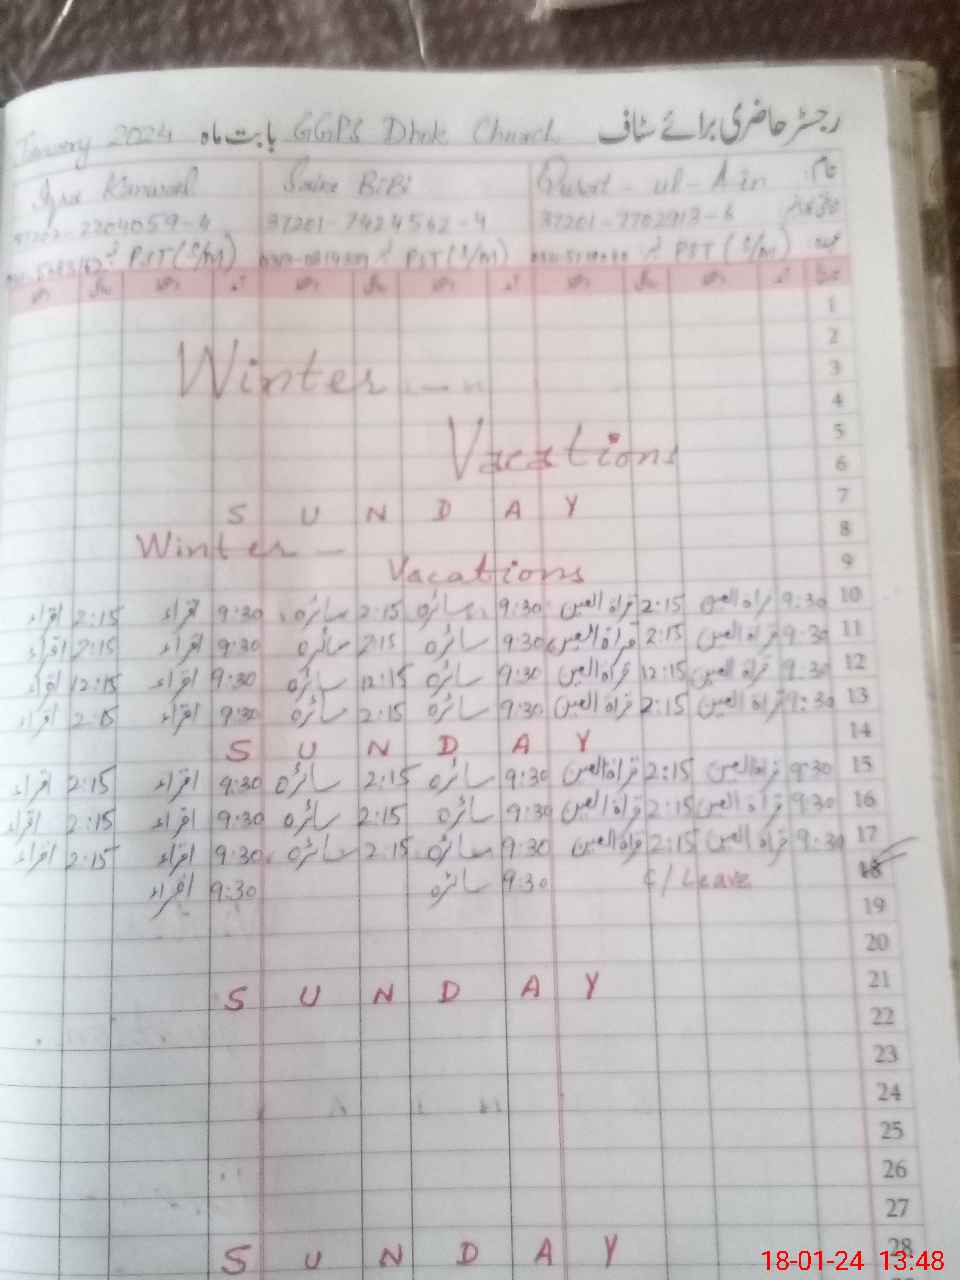 رجسٹر حاضری برائے سٹاف GGPS Dhok Church بابت ماہ January 2024
نام Qurat-ul-Ain Saira BiBi Iqra Kanwal
37201-7424562-4
عہدہ PST (S/M) PST (S/M) PST (S/M)
1
2
Winter
3
4
5
Vacations
6
7 S U N D A Y
8 Winter
9 Vacations
10 9:30 قراۃ العین 2:15 قراۃ العین 9:30 سائرہ 2:15 سائرہ 9:30 اقراء 2:15 اقراء
11 9:30 قراۃ العین 2:15 قراۃ العین 9:30 سائرہ 2:15 سائرہ 9:30 اقراء 2:15 اقراء
12 9:30 قراۃ العین 12:15 قراۃ العین 9:30 سائرہ 12:15 سائرہ 9:30 اقراء 12:15 اقراء
13 9:30 قراۃ العین 2:15 قراۃ العین 9:30 سائرہ 2:15 سائرہ 9:30 اقراء 2:15 اقراء
14 S U N D A Y
15 9:30 قراۃ العین 2:15 قراۃ العین 9:30 سائرہ 2:15 سائرہ 9:30 اقراء 2:15 اقراء
16 9:30 قراۃ العین 2:15 قراۃ العین 9:30 سائرہ 2:15 سائرہ 9:30 اقراء 2:15 اقراء
17 9:30 قراۃ العین 2:15 قراۃ العین 9:30 سائرہ 2:15 سائرہ 9:30 اقراء 2:15 اقراء
18 C/Leave 9:30 سائرہ 9:30 اقراء
19
20
21 S U N D A Y
22
23
24
25
26
27
28 S U N D A Y
18-01-24 13:48